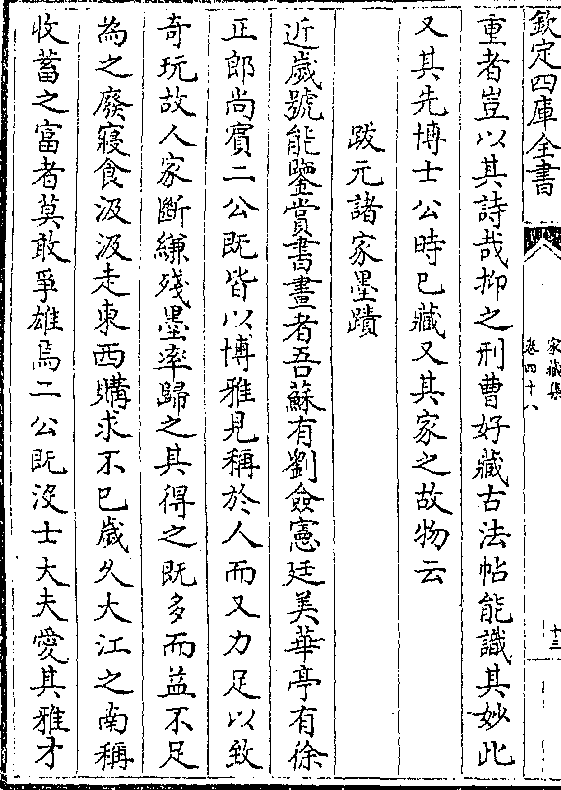 欽定四庫全書
家藏集
卷四十八
十三
重者豈以其詩哉抑之刑曹好藏古法帖能識其妙此
又其先博士公時已藏又其家之故物云
跋元諸家墨蹟
近歲號能鑒賞書畫者吾蘇有劉僉憲廷美華亭有徐
正郎尚賔二公既皆以博雅見稱於人而又力足以致
奇玩故人家斷縑殘墨率歸之其得之既多而益不足
為之廢寢食汲汲走東西購求不已歲久大江之南稱
收蓄之富者莫敢爭雄焉二公既沒士大夫愛其雅才